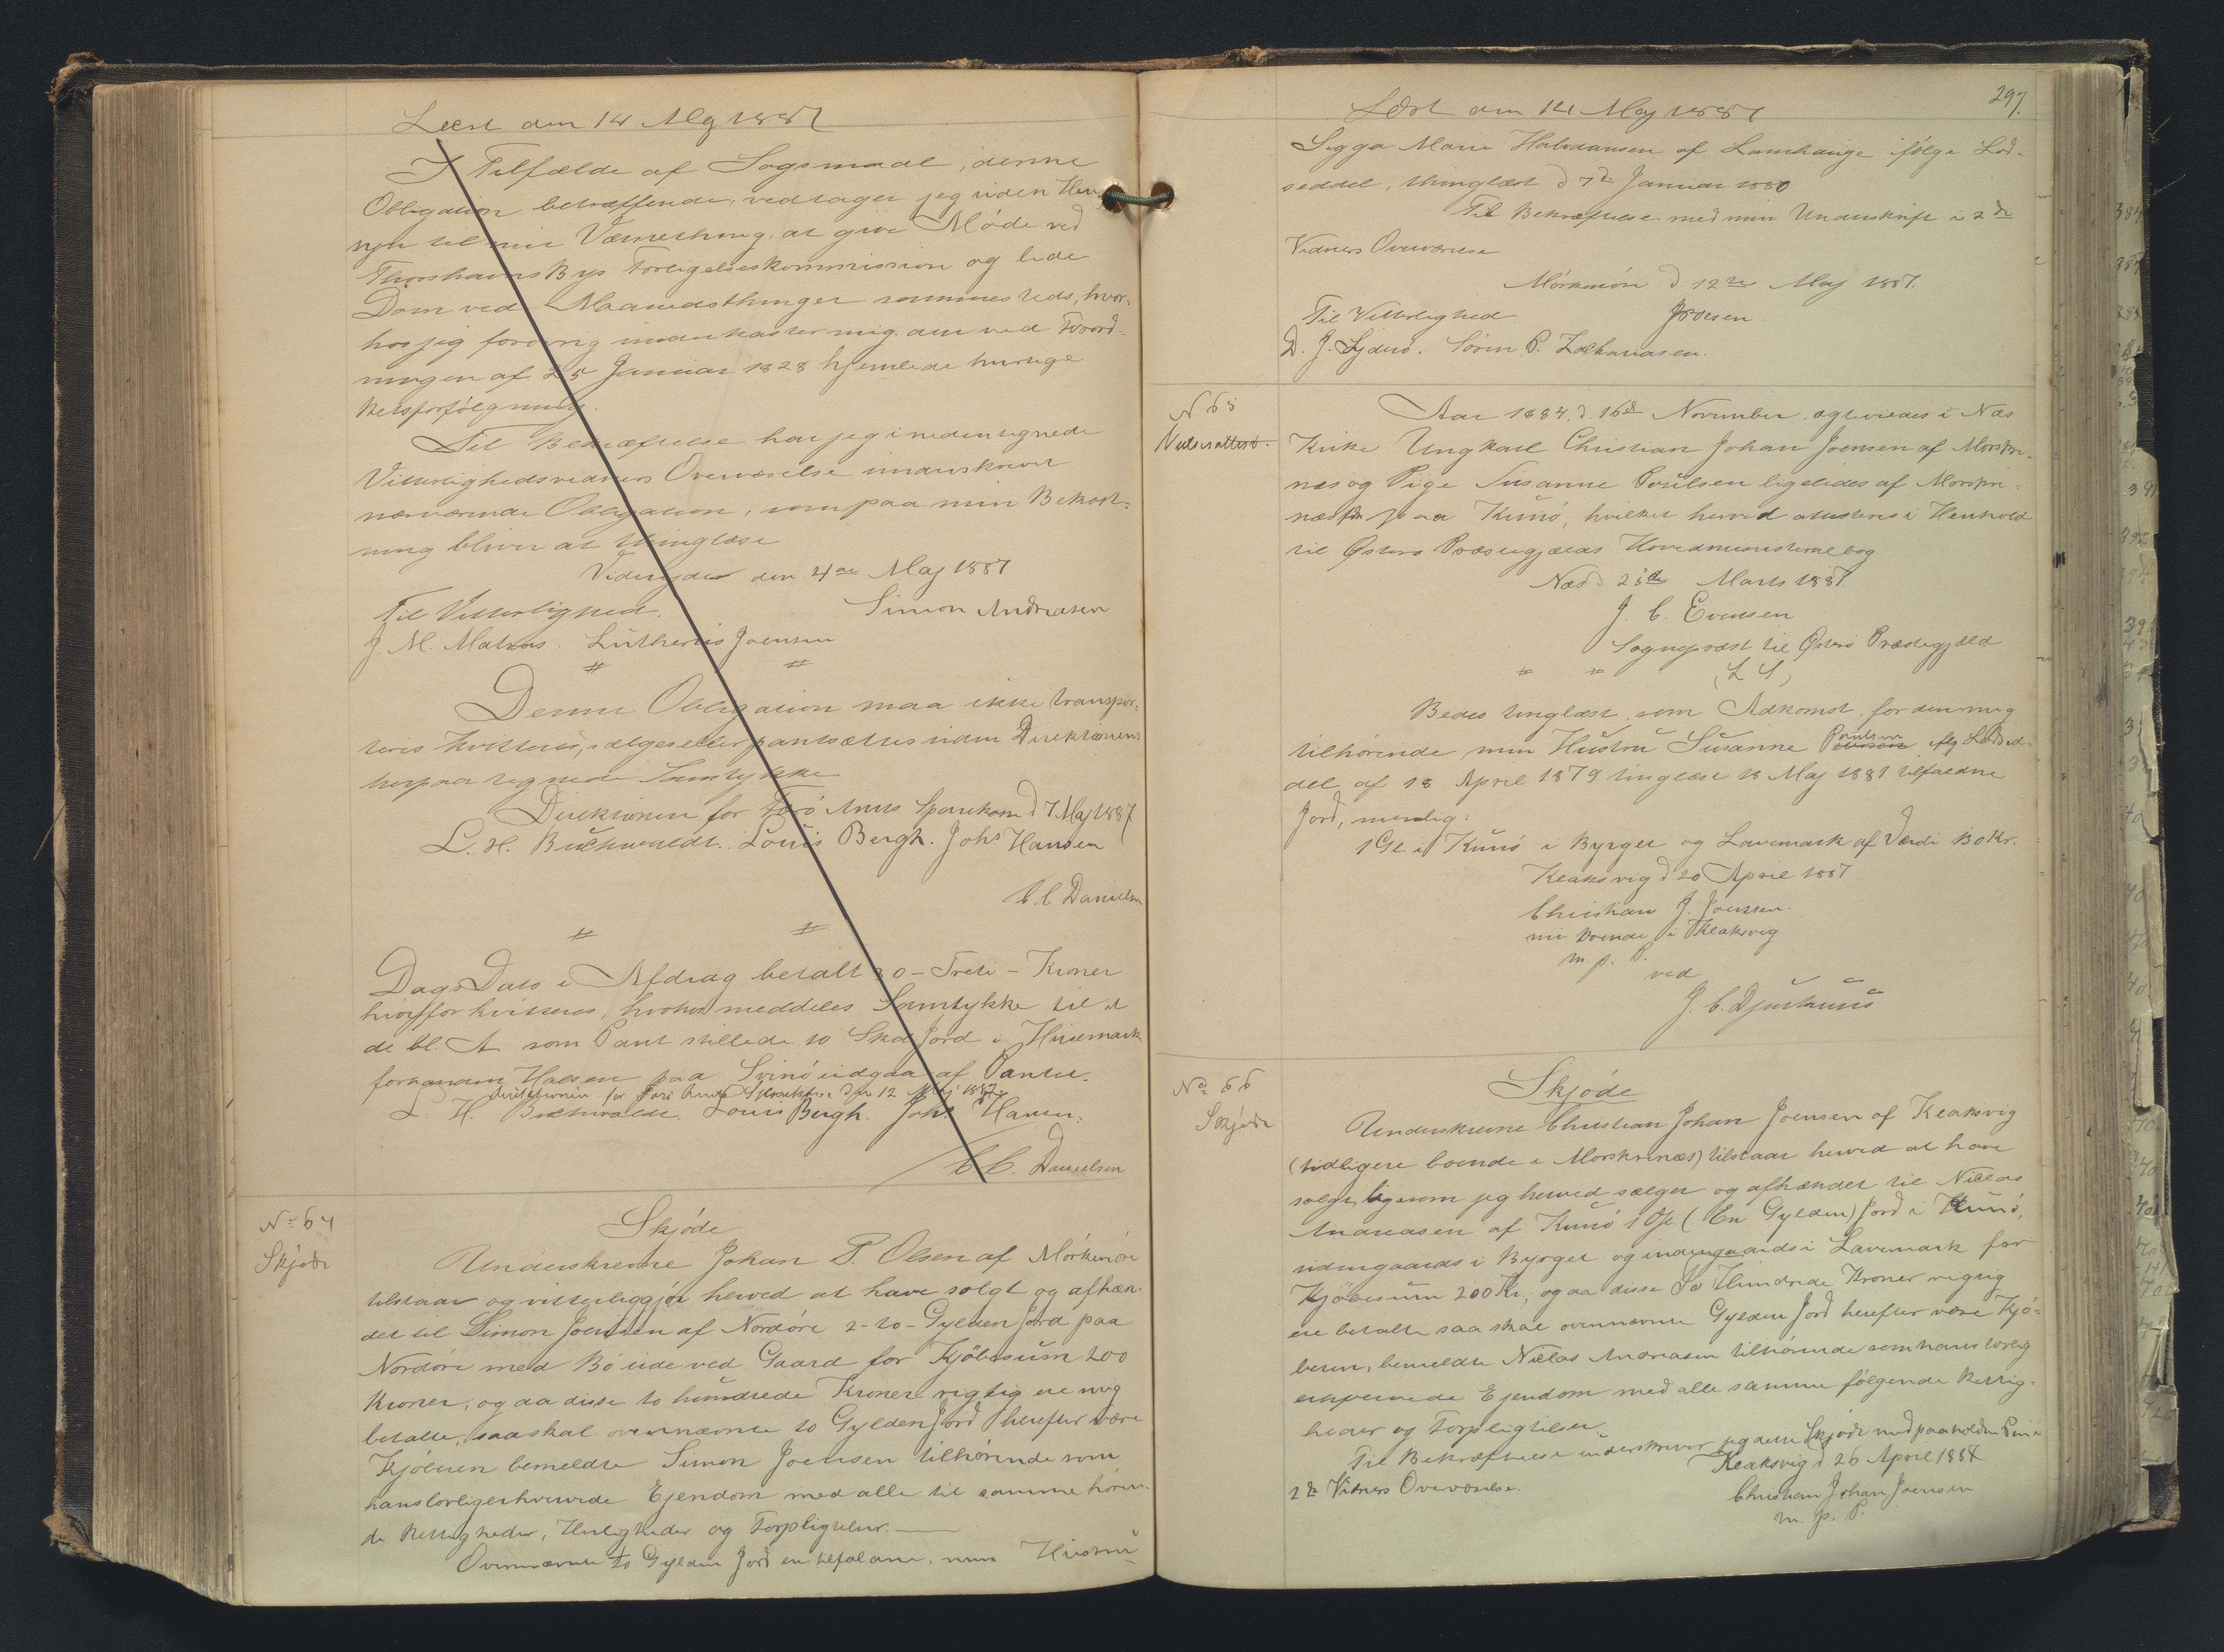 Læst den 14 Maj 1887
I Tilfælde af Søgsmaal, denne
Obligation betræffende, vedtager jeg uden Hen-
syn til mit Værnething, at give Møde ved
Thorshavns Bys Forligelseskommission og lide
Dom ved Maanedsthinget sammesteds, hvor-
hos jeg forøvrig underkaster mig den ved Forord-
ningen af 25 Januar 1828 hjemlede hurtige
Retsforfølgning.
Til Bekræftelse har jeg i nedentegnede
Vitterlighedsvidners Overværelse underskrevet
nærværende Obligation, som paa min Bekost-
ning bliver at thinglæse
Viderejde den 4de Maj 1887
Til Vitterlighed. Simon Andreasen
J. M. Matras. Lutherus Joensen
Denne Obligation maa ikke transpor-
teres kvitteres, sælges eller pantsættes uden Direktionens
herpaa tegnede Samtykke
Direktionen for Færø Amts Sparekasse d 7 Maj 1887
L. H. Buchwaldt. Louis Bergh. Johs Hansen
C. C. Danielsen
Dags Dato i Afdrag betalt 30 - Treti - Kroner
hvorfor kvitteres, hvorhos meddeles Samtykke til at
de bl. A. som Pant stillede to Skd Jord i Husemark
forhannem Halsen paa Svinø udgaa af Pantet.
Direktionen for Færø Amts Sparekasse den 12 Maj 1887
L. H. Buchwaldt. Louis Bergh. Johs Hansen.
C. C. Danielsen
No 64
Skjøde
Skjøde
Underskrevne Johan P. Olsen af Mörkenöre
tilstaar og vitterliggjør herved at have solgt og afhæn-
det til Simon Joensen af Nordöre 2 - to - Gylden Jord paa
Nordöre med Bö ude ved Gaard for Kjøbesum 200
Kroner, og da disse to hundrede Kroner rigtig ere mig
betalte, saa skal ovennævnte to Gylden Jord herefter være
Kjøberen bemeldte Simon Joensen tilhørende som
hans lovligerhvervede Ejendom med alle til samme høren-
de Rettigheder, Herligheder og Forpligtelser.
Ovennævnte to Gylden Jord er tilfaldne, min Hustru
297.
Læst den 14 Maj 1887
Sigga Marie Halvdansen af Lamhauge ifølge Lod-
seddel, thinglæst d 7de Januar 1880
Til Bekræftelse med min Underskrift i 2de
Vidners Overværelse
Mörkenöre d 12te Maj 1887.
Til Vitterlighed JPOlsen
D. J. Sjdurö. Sören P. Zachariasen.
N 65
Vielsesattest.
Aar 1884 d. 16de November ægteviedes i Næs
Kirke Ungkarl Christian Johan Joensen af Morskre-
næs og Pige Susanne Poulsen ligeledes af Morskre-
næs fdt paa Kunö, hvilket herved attesteres i Henhold
til Østerö Præstegjælds Hovedministerialbog
Næs d. 25de Marts 1887.
J. C. Evensen
Sognepræst til Østerö Præstegjæld
(L S)
Bedes tinglæst, som Adkomst, for den mig
tilhørende min Hustru Susanne Poulsen iflg Lodsed-
del af 18 April 1879 tinglæst 18 Maj 1881 tilfaldne
Jord, nemlig:
1 Gl. i Kunö i Byrget og Lavemark af Værdi 130 Kr.
Klaksvig d 20 April 1887
Christian J. Joensen.
nu boende i Klaksvig
m. p. P.
ved
J. C. Djurhuus
No 66
Skjøde
Skjøde
Underskrevne Christian Johan Joensen af Klaksvig
(tidligere boende i Morskrenæs) tilstaar herved at have
solgt, ligesom jeg herved sælger og afhænder til Niclas
Andreasen af Kunö 1 Gl. (En Gylden) Jord i Kunö,
indengaards i Byrget og udengaards i Lavemark for
Kjøbesum 200 Kr, og da disse To Hundrede Kroner rigtig
ere betalte saa skal ovennævnte Gylden Jord herefter være Kjø-
beren, bemeldte Niclas Andreasen tilhørende som hans lovlig
erhvervede Ejendom med alle samme følgende Rettig-
heder og Forpligtelser.
Til Bekræftelse underskriver jeg dette Skjøde med paaholden Pen i
2de Vidners Overværelse.
Klaksvig d. 26 April 1887
Christian Johan Joensen
m. p. P.